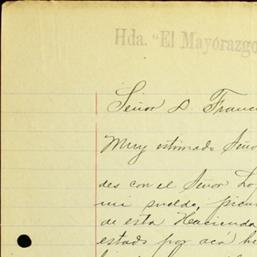 Hda. "El Mayorazgo
Señor D. Franc
Muy estimado Seño
des con el Señor Lo
mi sueldo, 
de esta Hacienda
estado por acá h